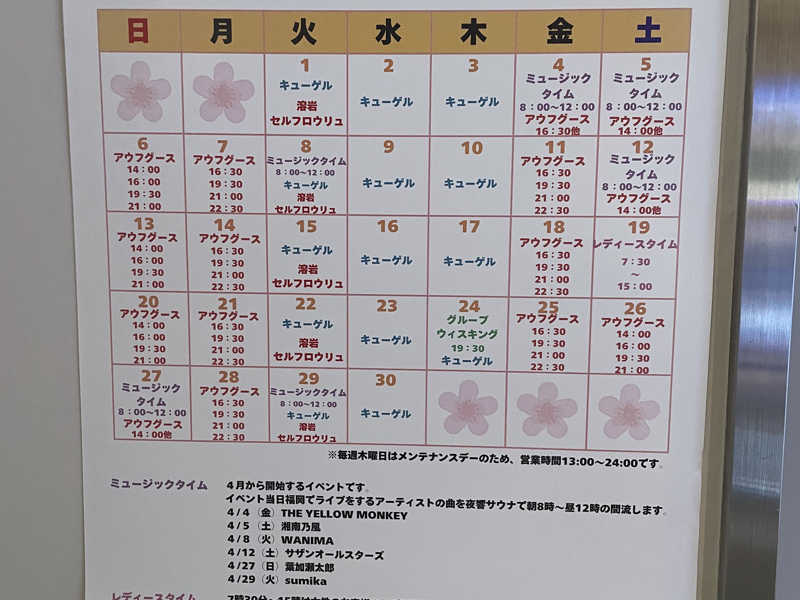 日 月 火 水 木 金 土
1
キューゲル
溶岩
セルフロウリュ
2
キューゲル
3
キューゲル
4
ミュージック
タイム
8：00〜12：00
アウフグース
16：30他
5
ミュージック
タイム
8：00〜12：00
アウフグース
14：00他
6
アウフグース
14：00
16：00
19：30
21：00
7
アウフグース
16：30
19：30
21：00
22：30
8
ミュージックタイム
8：00〜12：00
キューゲル
溶岩
セルフロウリュ
9
キューゲル
10
キューゲル
11
アウフグース
16：30
19：30
21：00
22：30
12
ミュージック
タイム
8：00〜12：00
アウフグース
14：00他
13
アウフグース
14：00
16：00
19：30
21：00
14
アウフグース
16：30
19：30
21：00
22：30
15
キューゲル
溶岩
セルフロウリュ
16
キューゲル
17
キューゲル
18
アウフグース
16：30
19：30
21：00
22：30
19
レディースタイム
7：30
〜
15：00
20
アウフグース
14：00
16：00
19：30
21：00
21
アウフグース
16：30
19：30
21：00
22：30
22
キューゲル
溶岩
セルフロウリュ
23
キューゲル
24
グループ
ウィスキング
19：30
キューゲル
25
アウフグース
16：30
19：30
21：00
22：30
26
アウフグース
14：00
16：00
19：30
21：00
27
ミュージック
タイム
8：00〜12：00
アウフグース
14：00他
28
アウフグース
16：30
19：30
21：00
22：30
29
ミュージックタイム
8：00〜12：00
キューゲル
溶岩
セルフロウリュ
30
キューゲル
※毎週木曜日はメンテナンスデーのため、営業時間13:00〜24:00です。
ミュージックタイム 4月から開始するイベントです。
イベント当日福岡でライブをするアーティストの曲を夜響サウナで朝8時〜昼12時の間流します。
4/4（金）THE YELLOW MONKEY
4/5（土）湘南乃風
4/8（火）WANIMA
4/12（土）サザンオールスターズ
4/27（日）葉加瀬太郎
4/29（火）sumika
レディースタイム